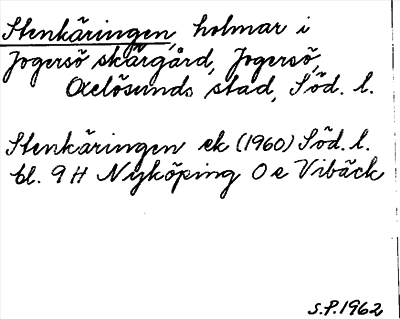 Stenkäringen, holmar i
Jogersö skärgård, Jogersö,
Oxelösunds stad, Söd. l.
Stenkäringen ek (1960) Söd. l.
bl. 9H Nyköping O e Vibäck
S.P. 1962